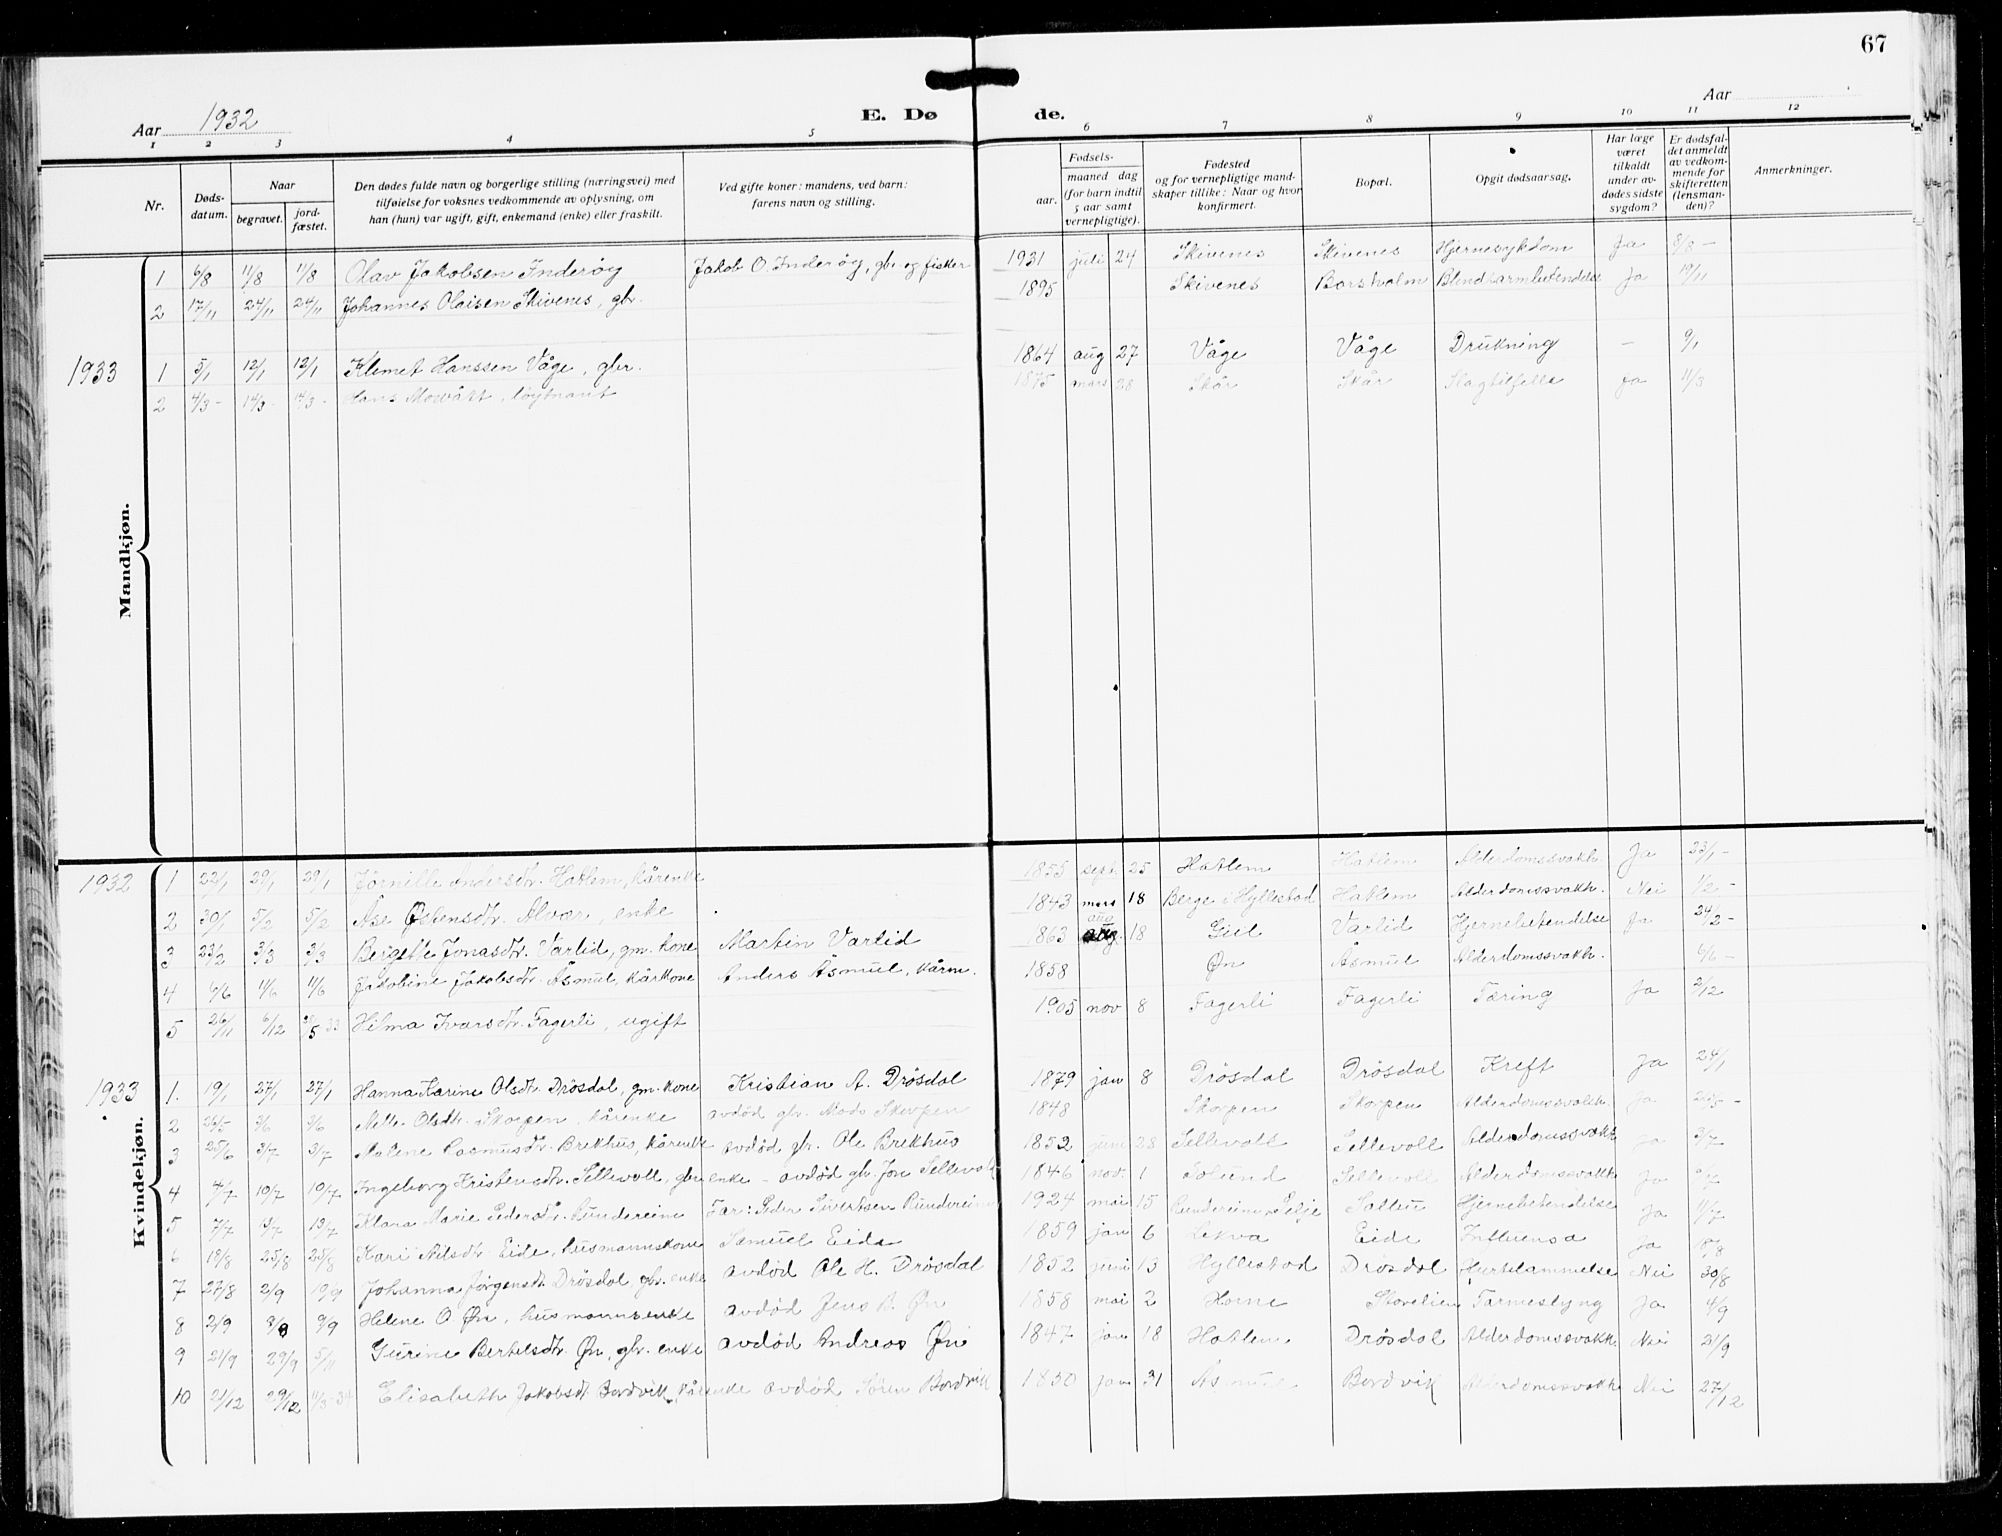 67
Aar 1932
E. Dø
de.
Aar
1 2 3 4 5 6 7 8 9 10 11 12
Nr. Døds-datum. Naar begravet. jord-fæstet. Den dødes fulde navn og borgerlige stilling (næringsvei) med tilføielse for voksnes vedkommende av oplysning, om han (hun) var ugift, gift, enkemand (enke) eller fraskilt. Ved gifte koner: mandens, ved barn: farens navn og stilling. Fødsels- aar. maaned dag (for barn indtil 5 aar samt vernepligtige). Fødested og for vernepligtige mand-skaper tillike: Naar og hvor konfirmert. Bopæl. Opgit dødsaarsag. Har læge været tilkaldt under av-dødes sidste sygdom? Er dødsfal-det anmeldt av vedkom-mende for skifteretten (lensman-den)? Anmerkninger.
Mandkjøn.
1 6/8 11/8 11/8 Olav Jakobsen Inderöy Jakob O. Inderöy, gbr. og fisker 1931 juli 24 Skivenes Skivenes Hjernesykdom Ja 8/8 -
2 17/11 24/11 24/11 Johannes Olaisen Skivenes, gbr. 1895 Skivenes Borsholm Blindtarmbetendelse Ja 19/11
1933 1 5/1 12/1 12/1 Klemet Hanssen Våge, gbr. 1864 aug 27 Våge Våge Drukning - 9/1
2 4/3 - 14/3 - 14/3 - Hans Mowått, löytnant 1875 mars 28 Skår Skår Slagtilfelle Ja 11/3
Kvindekjøn.
1932 1 22/1 29/1 29/1 Jörnille Andersdtr. Hatlem, kårenke 1855 sept. 25 Hatlem Hatlem Alderdomssvakh. Ja 23/1 -
2 30/1 5/2 5/2 Åse Østensdtr. Alvær, enke 1843 mars 18 Berge i Hyllestad Hatlem Alderdomssvakh. Nei 1/2 -
3 23/2 3/3 3/3 Bergitte Jonasdtr. Varlid, gm. kone Martin Varlid 1863 aug 18 Giil Varlid Hjernebetendelse Ja 24/2 -
4 6/6 11/6 11/6 Jakobine Jakobsdtr. Åsmul, kårkone Anders Åsmul, kårm. 1858 Øn Åsmul Alderdomssvakh. 6/6 -
5 26/11 6/12 5 33 Hilma Ivarsdtr. Fagerli, ugift 1905 nov 8 Fagerli Fagerli Tæring Ja 2/12
1933 1. 19/1 27/1 27/1 Hanna Karine Olsdtr. Drösdal, gm. kone Kristian A. Drösdal 1879 jan 8 Drösdal Drösdal Kreft Ja 24/1
2 3/6 3/6 Mette Olsdtr. Skorpen, kårenke avdöd gbr. Mads Skorpen 1848 Skorpen Skorpen Alderdomssvakh. Ja
3 25/6 3/7 3/7 Malene Rasmusdtr. Brekhus, kårenke avdöd gbr. Ole Brekhus 1852 juni 28 Sellevoll Sellevoll Alderdomssvakh Ja 3/7
4 4/7 10/7 10/7 Ingeborg Kristensdtr. Sellevoll, gbr enke - avdöd gbr. Jon Sellevoll 1846 nov. 1 Solund Sellevoll Alderdomssvakh Ja
5 7/7 13/7 13/7 Klara Marie Pedersdtr. Rundereim Far: Peder Sivertsen Rundereim 1924 mai 15 Rundereim, Selje Hjernebetendelse Ja 11/7
6 18/8 25/8 25/8 Kari Nilsdtr Eide, husmannskone Samuel Eide 1859 jan 6 Lekva Eide Influensa Ja
7 27/8 2/9 19/9 Johanna Jörgensdt. Drösdal, gbr. enke avdöd Ole H. Drösdal 1852 juni 15 Hyllestad Drösdal Hjertelammelse Nei 30/8
8 2/9 9/9 Helene O. Øn, husmannsenke avdöd Jens B. Øn 1858 mai 2 Tarmeslyng Ja 4/9
9 21/9 29/9 5/11 Gurine Bertelsdtr. Øn, gbr. enke avdöd Andreas Øn 1847 jan 18 Hatlem Drösdal Alderdomssvakh. Nei 21/9
10 21/12 29/12 11/3-34 Elisabeth Jakobsdt Bordvik, kårenke avdöd Sören Bordvik 1850 jan 31 Åsmul Bordvik Alderdomssvakh Nei 27/12